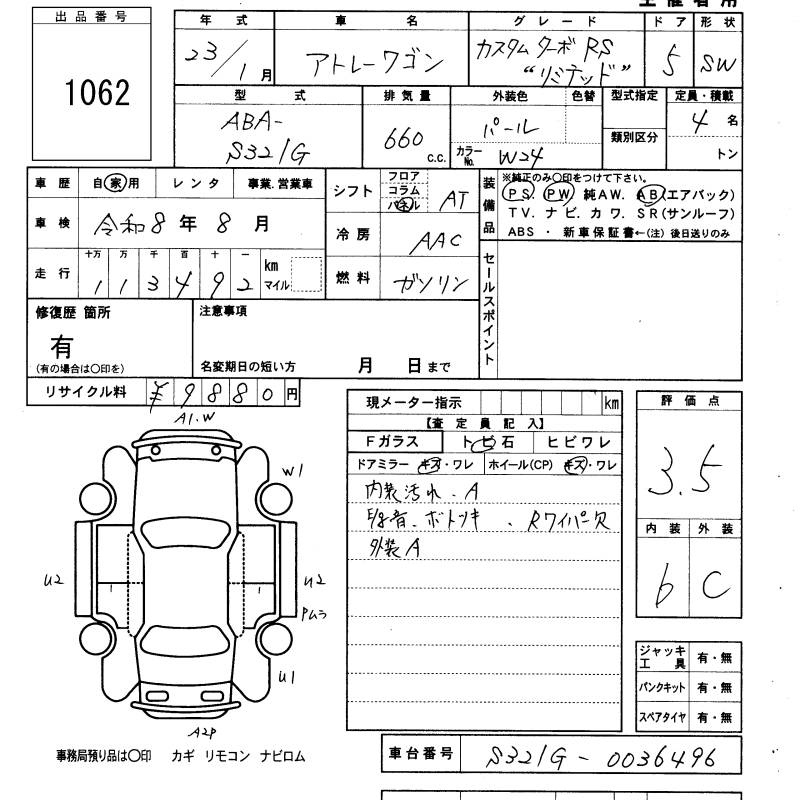 出品番号
1062
年式 車名 グレード ドア 形状
23/1月 アトレーワゴン カスタムターボRS “リミテッド” 5 SW
型式 排気量 外装色 色替 型式指定 定員・積載
ABA-
S321G 660 c.c. パール 4名
カラーNo. W24 類別区分 トン
車歴 自家用 レンタ 事業.営業車
車検 令和8年8月
走行 十万 万 千 百 十 一
1 1 3 4 9 2 km マイル
シフト フロア コラム パネル AT
冷房 AAC
燃料 ガソリン
装備品
※純正のみ○印をつけて下さい。
PS. PW. 純AW. AB(エアバック)
TV. ナビ. カワ. SR(サンルーフ)
ABS ・ 新車保証書←(注)後日送りのみ
セールスポイント
修復歴 箇所
有
(有の場合は○印を)
注意事項
名変期日の短い方 月 日まで
リサイクル料 ¥9880円
A1.W
W1
U2
U2
Pムラ
U1
A2P
現メーター指示 km
【査定員記入】
Fガラス トビ石 ヒビワレ
ドアミラー キズ・ワレ ホイール(CP) キズ・ワレ
内装汚れ.A
ボトツキ 、Rワイパー欠
外装A
評価点
3.5
内装 外装
b C
ジャッキ工具 有・無
パンクキット 有・無
スペアタイヤ 有・無
事務局預り品は○印 カギ リモコン ナビロム
車台番号 S321G-0036496